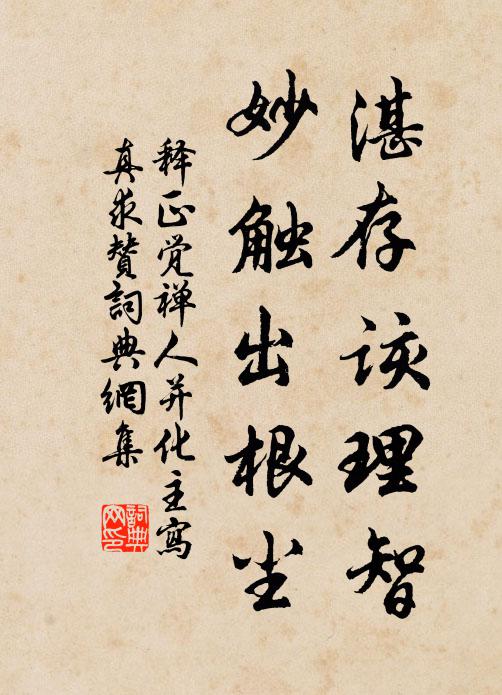 湛存该理智
妙触出根尘
释正觉禅人并化主寫
真求赞詞典網集
詞典网印